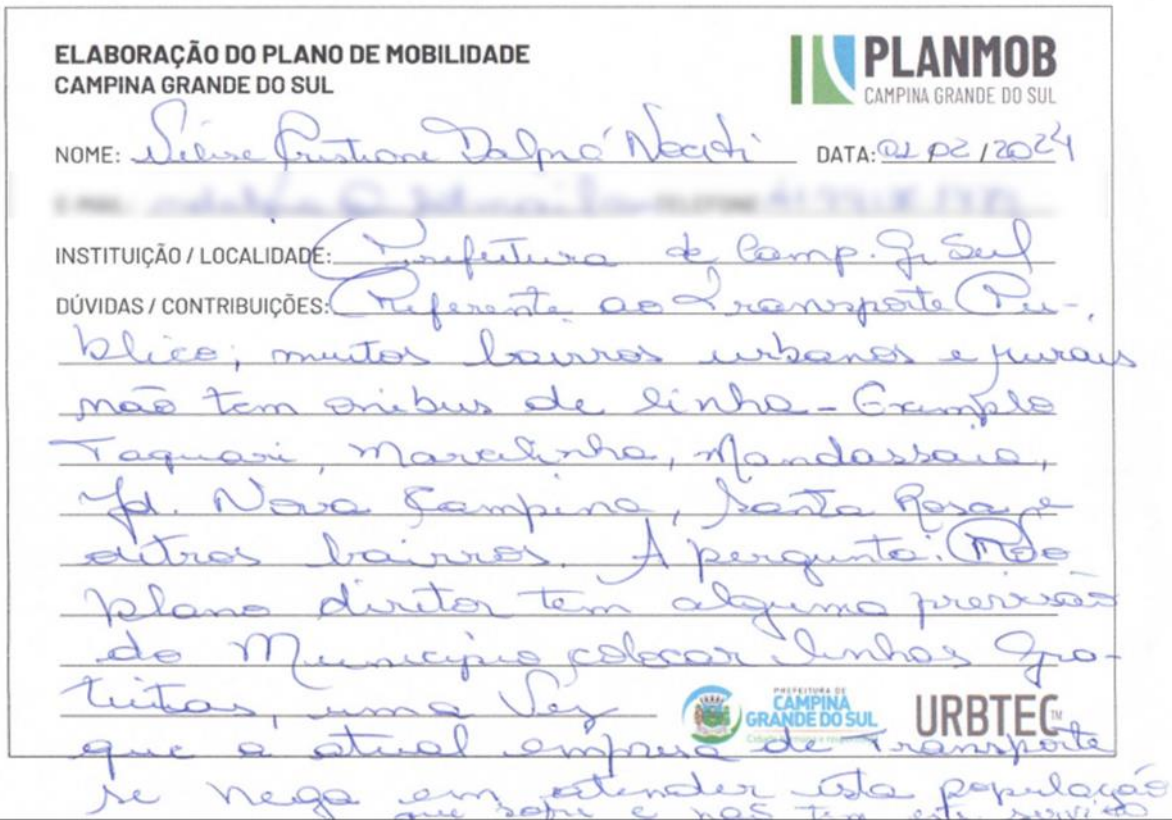 ELABORAÇÃO DO PLANO DE MOBILIDADE
CAMPINA GRANDE DO SUL
PLANMOB
CAMPINA GRANDE DO SUL
NOME: Cristiane Dalprá DATA: 02/02/2024
INSTITUIÇÃO / LOCALIDADE: Prefeitura de Camp. Gr Sul
DÚVIDAS / CONTRIBUIÇÕES: Referente ao Transporte Pú-
blico; muitos bairros urbanos e rurais
não tem onibus de linha - Exemplo
Taquari, Maracilinha, Mandassaia,
Jd. Nova Campina, Santa Rosa e
outros bairros. A pergunta: No
plano diretor tem alguma previsão
do Município colocar linhas Gra-
tuitas, uma Vez
PREFEITURA DE
CAMPINA
GRANDE DO SUL
URBTEC™
que a atual empresa de Transporte
se nega em atender esta população
que sofre e não tem este serviço